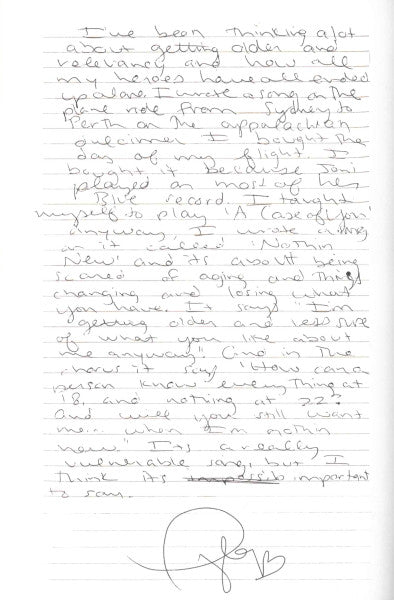 I've been thinking a lot
about getting older and
relevancy and how all
my heroes have all ended
up alone. I wrote a song on the
plane ride from Sydney to
Perth on the appalachian
dulcimer I bought the
day of my flight. I
bought it because Joni
played on most of her
Blue record. I taught
myself to play 'A Case of You'
anyway, I wrote a song
on it called 'Nothin
New' and its about being
scared of aging and things
changing and losing what
you have. It says "I'm
getting older and less sure
of what you like about
me anyway". And in the
chorus it says "How can a
person know everything at
18, and nothing at 22?
And will you still want
me... when I'm nothin
new." Its a really
vulnerable song, but I
think its important
to say.